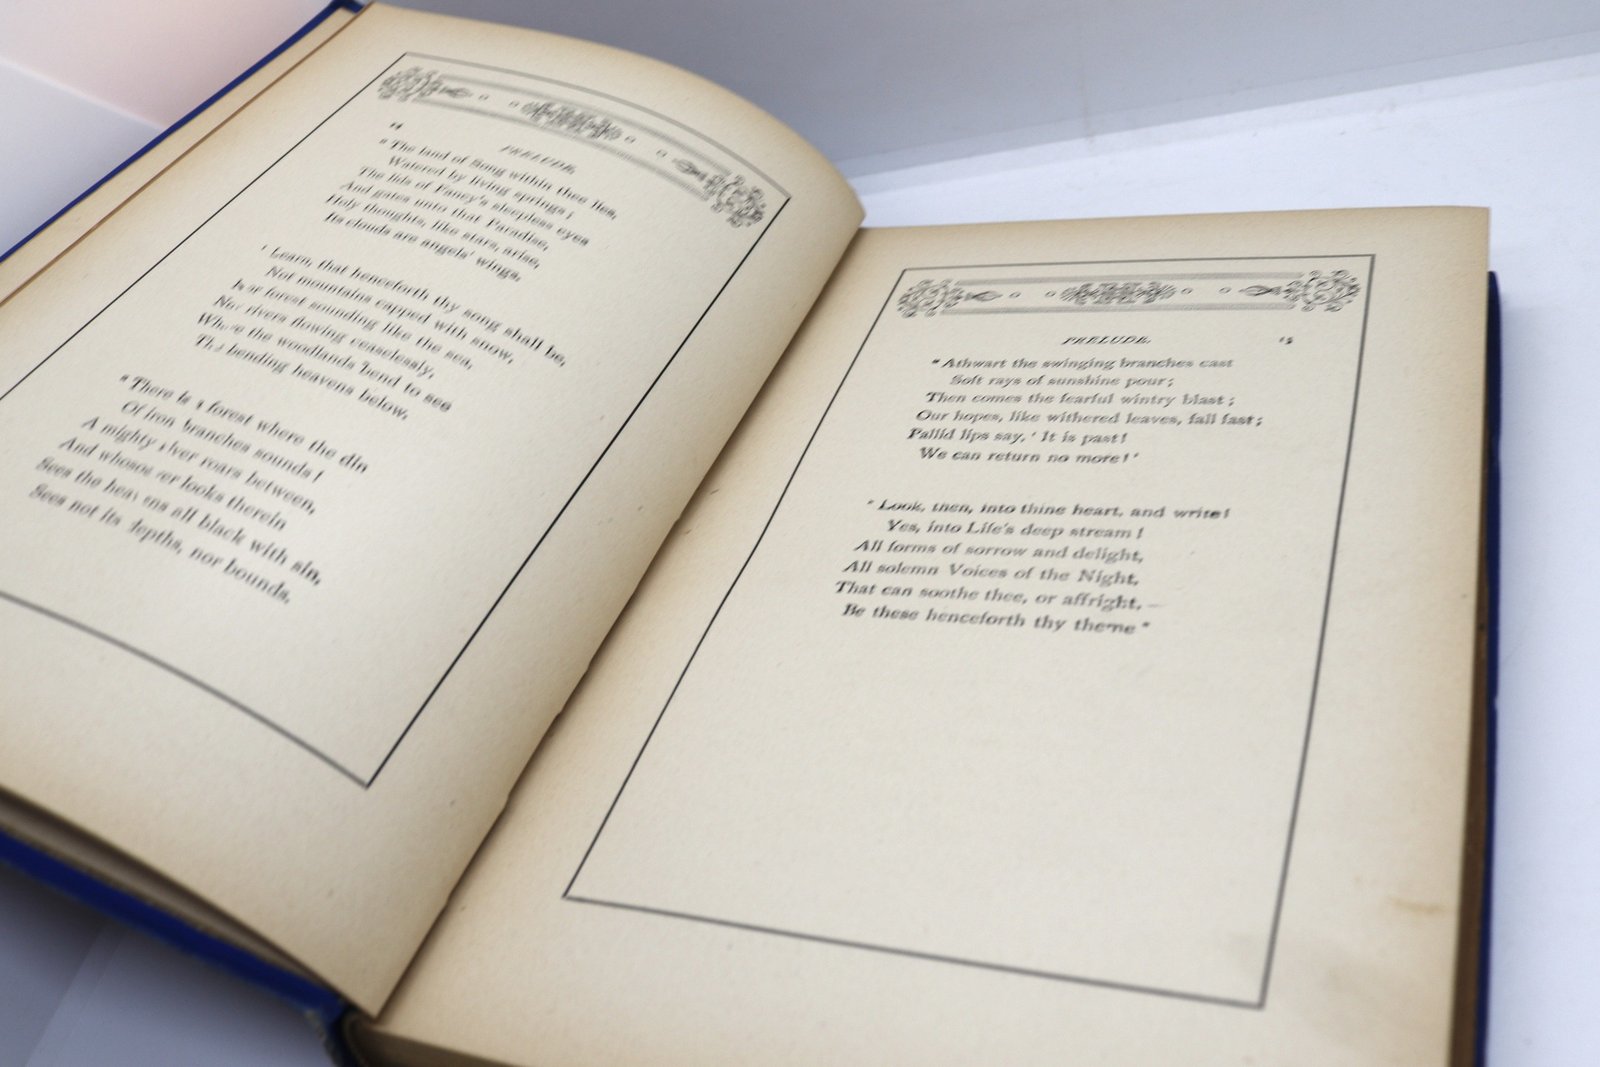 14
PRELUDE.
"The land of Song within thee lies,
Watered by living springs;
The lids of Fancy's sleepless eyes
And gates unto that Paradise,
Holy thoughts, like stars, arise,
Its clouds are angels' wings.
'Learn, that henceforth thy song shall be,
Not mountains capped with snow,
Nor forest sounding like the sea,
Nor rivers flowing ceaselessly,
Where the woodlands bend to see
The bending heavens below.
"There is a forest where the din
Of iron branches sounds!
A mighty river roars between,
And whosoever looks therein
Sees the heavens all black with sin,
Sees not its depths, nor bounds.
PRELUDE.
15
"Athwart the swinging branches cast
Soft rays of sunshine pour;
Then comes the fearful wintry blast;
Our hopes, like withered leaves, fall fast;
Pallid lips say, 'It is past!
We can return no more!'
"Look, then, into thine heart, and write!
Yes, into Life's deep stream!
All forms of sorrow and delight,
All solemn Voices of the Night,
That can soothe thee, or affright,—
Be these henceforth thy theme"